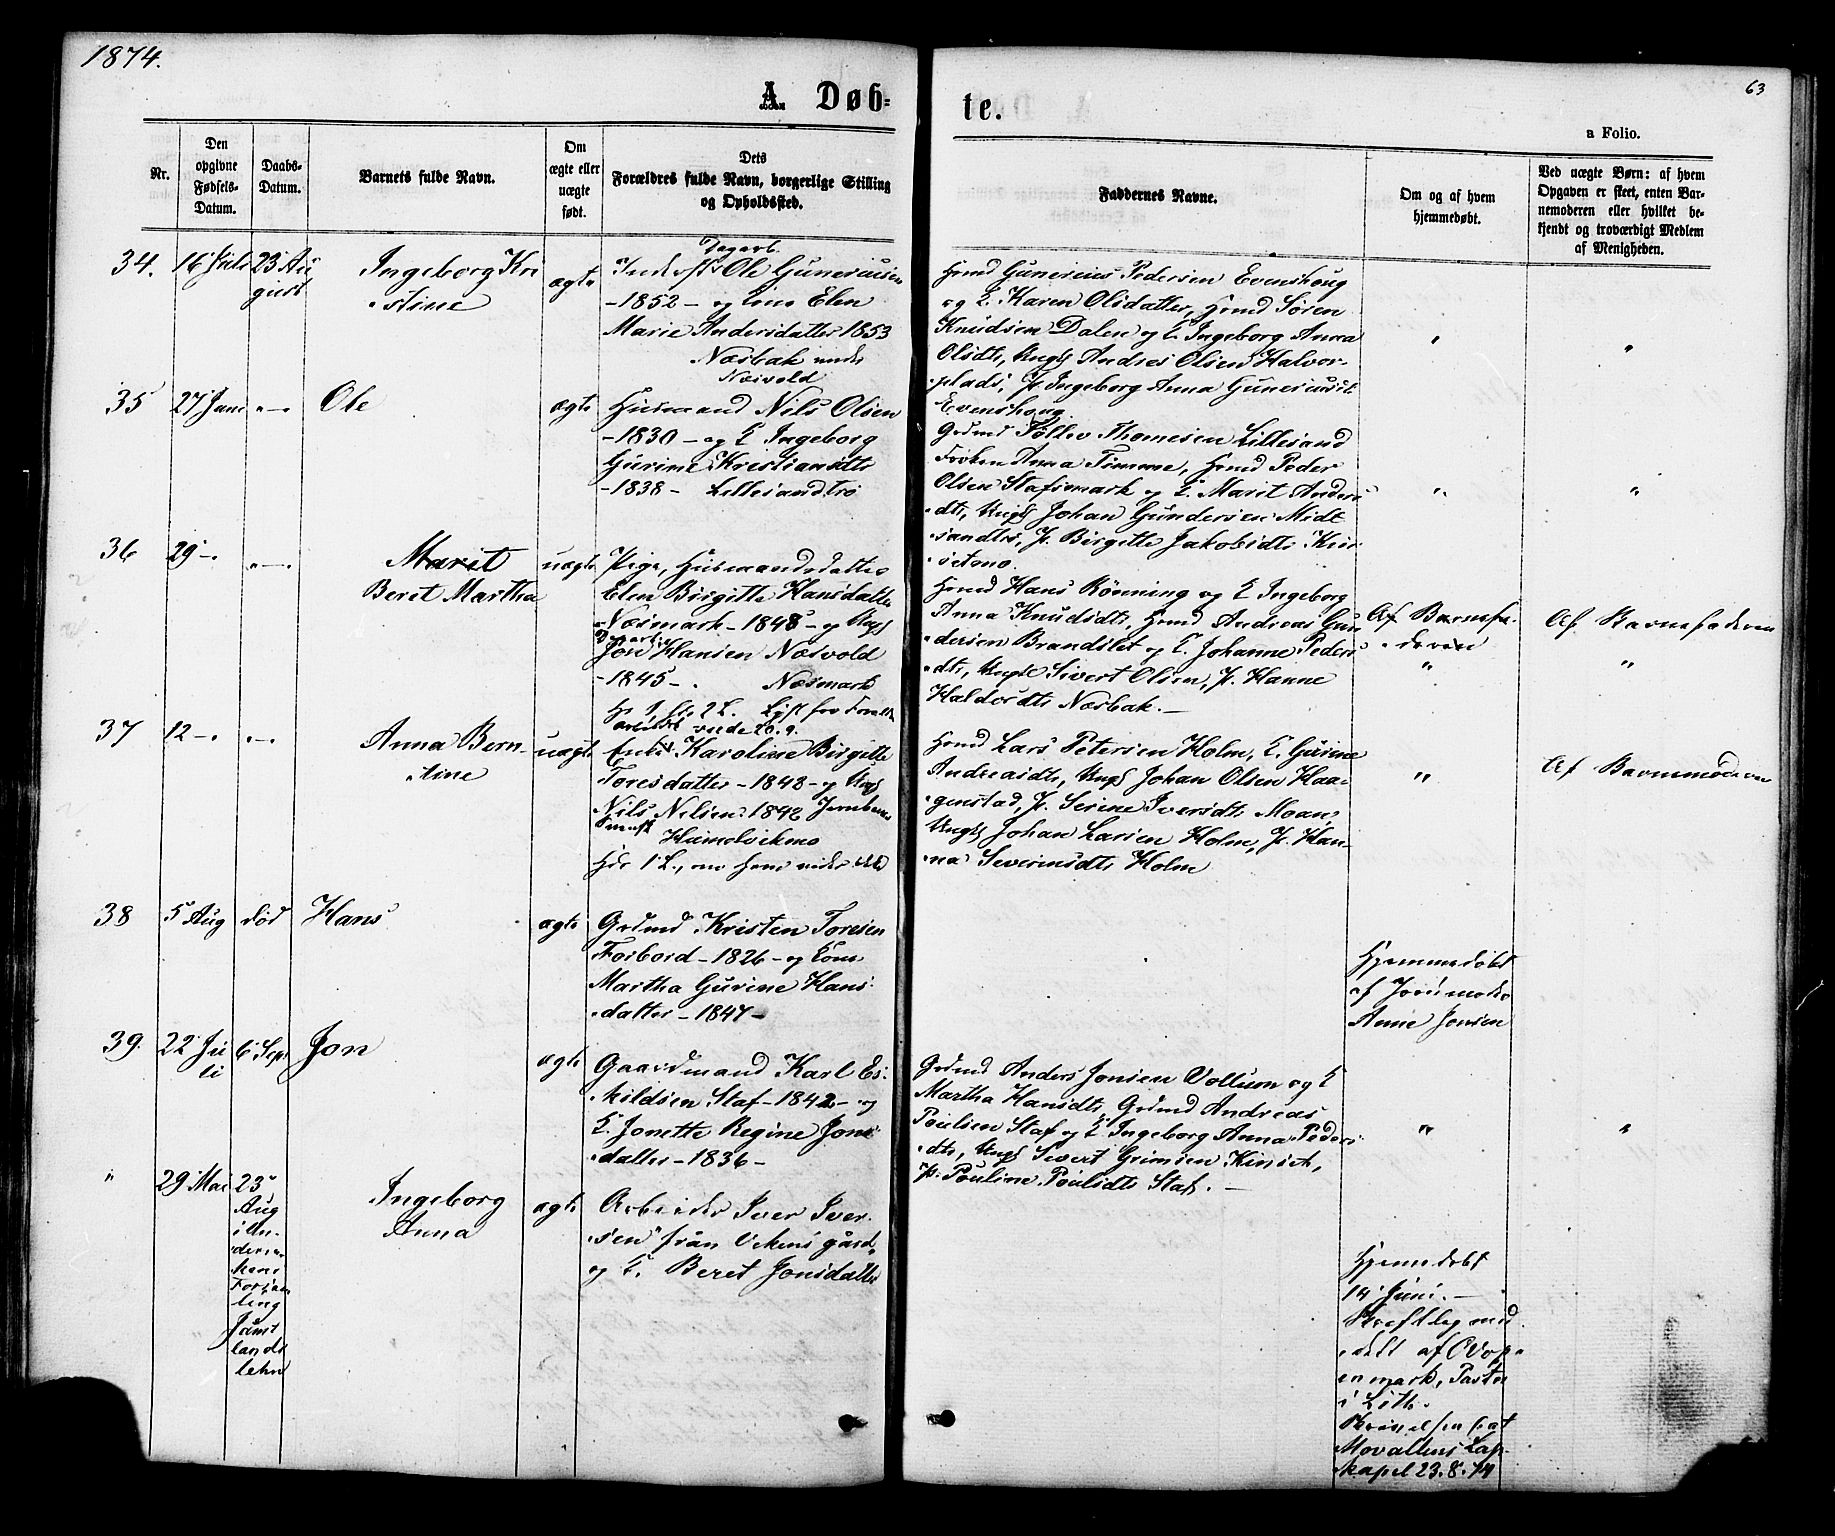 1874.
63
A. Døb-
te.
a Folio.
Nr.
Den opgivne Fødsels-Datum.
Daabs-Datum.
Barnets fulde Navn.
Om ægte eller uægte født.
Dets
Forældres fulde Navn, borgerlige Stilling
og Opholdssted.
Faddernes Navne.
Om og af hvem
hjemmedøbt.
Ved uægte Børn: af hvem
Opgaven er skeet, enten Bar-
nemoderen eller hvilket be-
kjendt og troværdigt Medlem
af Menigheden.
34.
16 Juli
23 Au
gust
Ingeborg Kri
stine
ægte
Dagarb.
Inderst Ole Guneriusen
-1852- og Kone Elen
Marie Andersdatter 1853
Næsbak under
Næsvold
Hmd Gunerius Pedersen Evenshoug
og K. Karen Olsdatter, Hmd Søren
Knudsen Dalen og K Ingeborg Anna
Olsdt, Ungk Andreas Olsen Halvor-
plads, P. Ingeborg Anna Guneriusdt
Evenshoug.
"
"
35
27 Juni
"—
Ole
ægte
Husmand Nils Olsen
-1830- og K Ingeborg
Gurine Kristiansdt
-1838- Lillesandtrø
Grdmd Tollev Thomesen Lillesand
Frøken Anna Timme, Hmd Peder
Olsen Stafsmark og K. Marit Anders
dt, Ungk Johan Gundersen Midt
sandtrø, P. Birgitte Jakobsdt Kvi
setmo.
"
"
36
29 —
"—
Marit
Beret Martha
uægte
Pige, Husmandsdatter
Elen Birgitte Hansdatter
Næsmark -1848- og Ungk
Jon Hansen Næsvold
-1845-. Næsmark
Hmd Hans Rønning og K Ingeborg
Anna Knudsdt, Hmd Andreas Gun
dersen Brandslet og K. Johanne Peders
dt, Ungk Sivert Olsen, P. Hanne
Haldorsdt Næsbak.—
Af Barnefa
deren
"
Af Barnefaderen
"
37
12 —
"—
Anna Bern-
tine
uægte
Enke Karoline Birgitte
Toresdatter -1843- og Ungk
Nils Nilsen 1842 Jernbane
Svensk
Hummelvikmo
Hmd Lars Petersen Holm, K. Gurine
Andreasdt, Ungk Johan Olsen Haa-
genstad, P. Serine Iversdt Moan,
Ungk Johan Larsen Holm, P. Han
na Severinsdt Holm
"
Af Barnemoderen
38
5 Aug
død
Hans
ægte
Grdmd Kristen Toresen
Forbord -1826- og Kone
Martha Gurine Hans
datter -1847-
Hjemmedøbt
af Jordmoder
Anne Jensen
39.
22 Ju
li
6 Sept
Jon
ægte
Gaardmand Karl Es-
kildsen Staf -1842- og
K. Jonette Regine Jons
datter -1836-
Grdmd Anders Jonsen Vollum og K
Martha Hansdt, Grdmd Andreas
Poulsen Staf og K. Ingeborg Anna Peders
dt, Ungk Sivert Grimsen Kinset,
P. Pouline Poulsdt Staf.—
"
"
"
29 Mai
23
Aug
i Un-
dersa-
kers
Forsam
ling
Jämt
lands
lehn
Ingeborg
Anna
ægte
Arbeider Iver Iver
sen från Vikens gård,
og K. Beret Jonsdatter
Hjemmedøbt
14 Juni.—
Skriftlig med
delt af
enmark, Pastor
i Lith.
Movallens Lap-
kapel 23.8.74